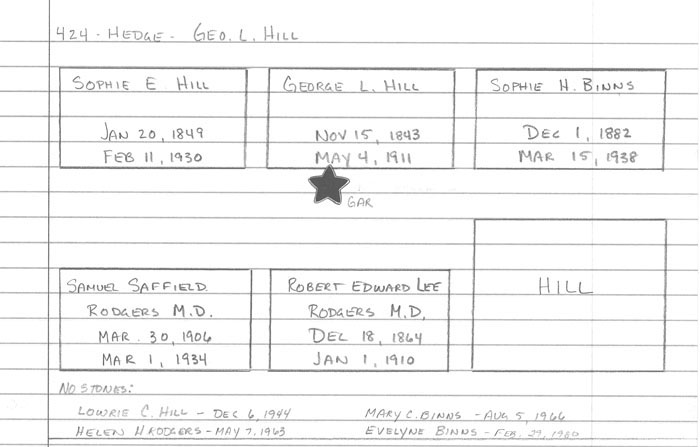 424 - HEDGE - GEO. L. HILL
SOPHIE E HILL
JAN 20, 1849
FEB 11, 1930
GEORGE L. HILL
NOV 15, 1843
MAY 4, 1911
SOPHIE H. BINNS
DEC 1, 1882
MAR 15, 1938
GAR
SAMUEL SAFFIELD
RODGERS M.D.
MAR. 30, 1906
MAR 1, 1934
ROBERT EDWARD LEE
RODGERS M.D,
DEC 18, 1864
JAN 1, 1910
HILL
NO STONES:
LOWRIE C. HILL - DEC 6, 1944
MARY C. BINNS - AUG 5, 1966
HELEN H RODGERS - MAY 7, 1963
EVELYNE BINNS - FEB. 29, 1980